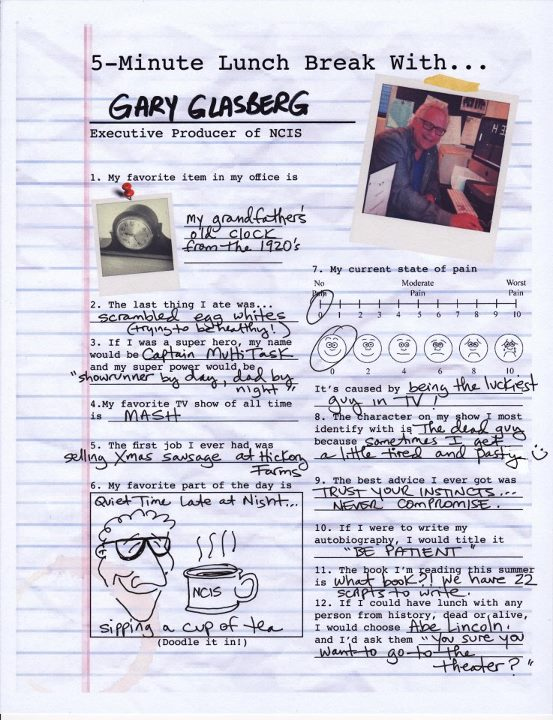 5-Minute Lunch Break With...
GARY GLASBERG
Executive Producer of NCIS
1. My favorite item in my office is
my grandfather's
old clock
from the 1920's
2. The last thing I ate was...
scrambled egg whites
(trying to be healthy!)
3. If I was a super hero, my name
would be Captain MultiTask
and my super power would be
"showrunner by day, dad by
night"
4.My favorite TV show of all time
is MASH
5. The first job I ever had was
selling Xmas sausage at Hickory
Farms
6. My favorite part of the day is
Quiet Time Late at Night...
NCIS
sipping a cup of tea
(Doodle it in!)
7. My current state of pain
No Moderate Worst
Pain Pain Pain
0 1 2 3 4 5 6 7 8 9 10
0 2 4 6 8 10
It's caused by being the luckiest
guy in TV!
8. The character on my show I most
identify with is The dead guy
because sometimes I get
a little tired and pasty
9. The best advice I ever got was
TRUST YOUR INSTINCTS...
NEVER COMPROMISE.
10. If I were to write my
autobiography, I would title it
"BE PATIENT"
11. The book I'm reading this summer
is what book?! We have 22
scripts to write.
12. If I could have lunch with any
person from history, dead or alive,
I would choose Abe Lincoln.
and I'd ask them "You sure you
want to go to the
theater?"